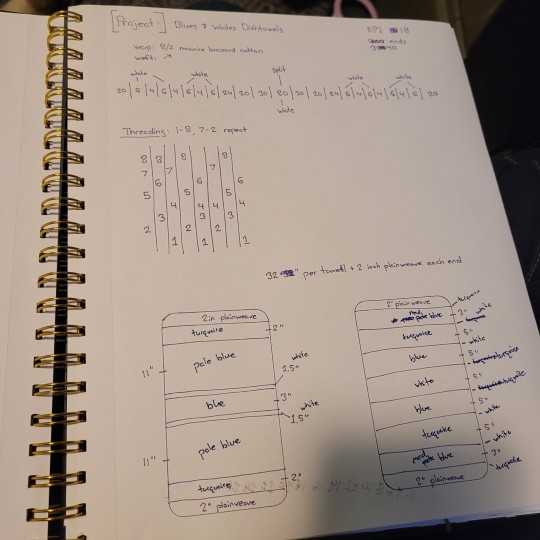 [Project:] Blues & Whites Dishtowels
EPI 18
warp: 8/2 maurice brassard cotton
ends
weft: 
340
white white split white white
20 | 6 | 4 | 6 | 4 | 6 | 4 | 6 | 24 | 20 | 30 | 80 | 30 | 20 | 24 | 6 | 4 | 6 | 4 | 6 | 4 | 6 | 20
white
Threading: 1-8, 7-2 repeat
8 8 8 8
7 7 7
6 6 6
5 5 5
4 4 4
3 3 3
2 2 2
1 1 1
32" per towel + 2 inch plainweave each end
2 in plainweave
turquoise 2"
11" pale blue
white
1.5"
blue 3"
white
1.5"
11" pale blue
turquoise 2"
2" plainweave
2" plainweave
turquoise
pale blue 3"
white
turquoise 5"
white
blue 5"
turquoise
white 5"
turquoise
blue 5"
white
turquoise 5"
white
pale blue 3"
turquoise
2" plainweave